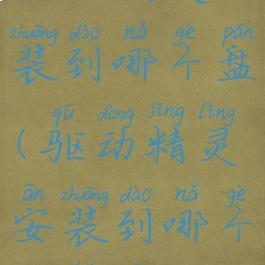 zhuāng dào nǎ gè pán
装到哪个盘
qū dòng jīng líng
(驱动精灵
ān zhuāng dào nǎ gè
安装到哪个